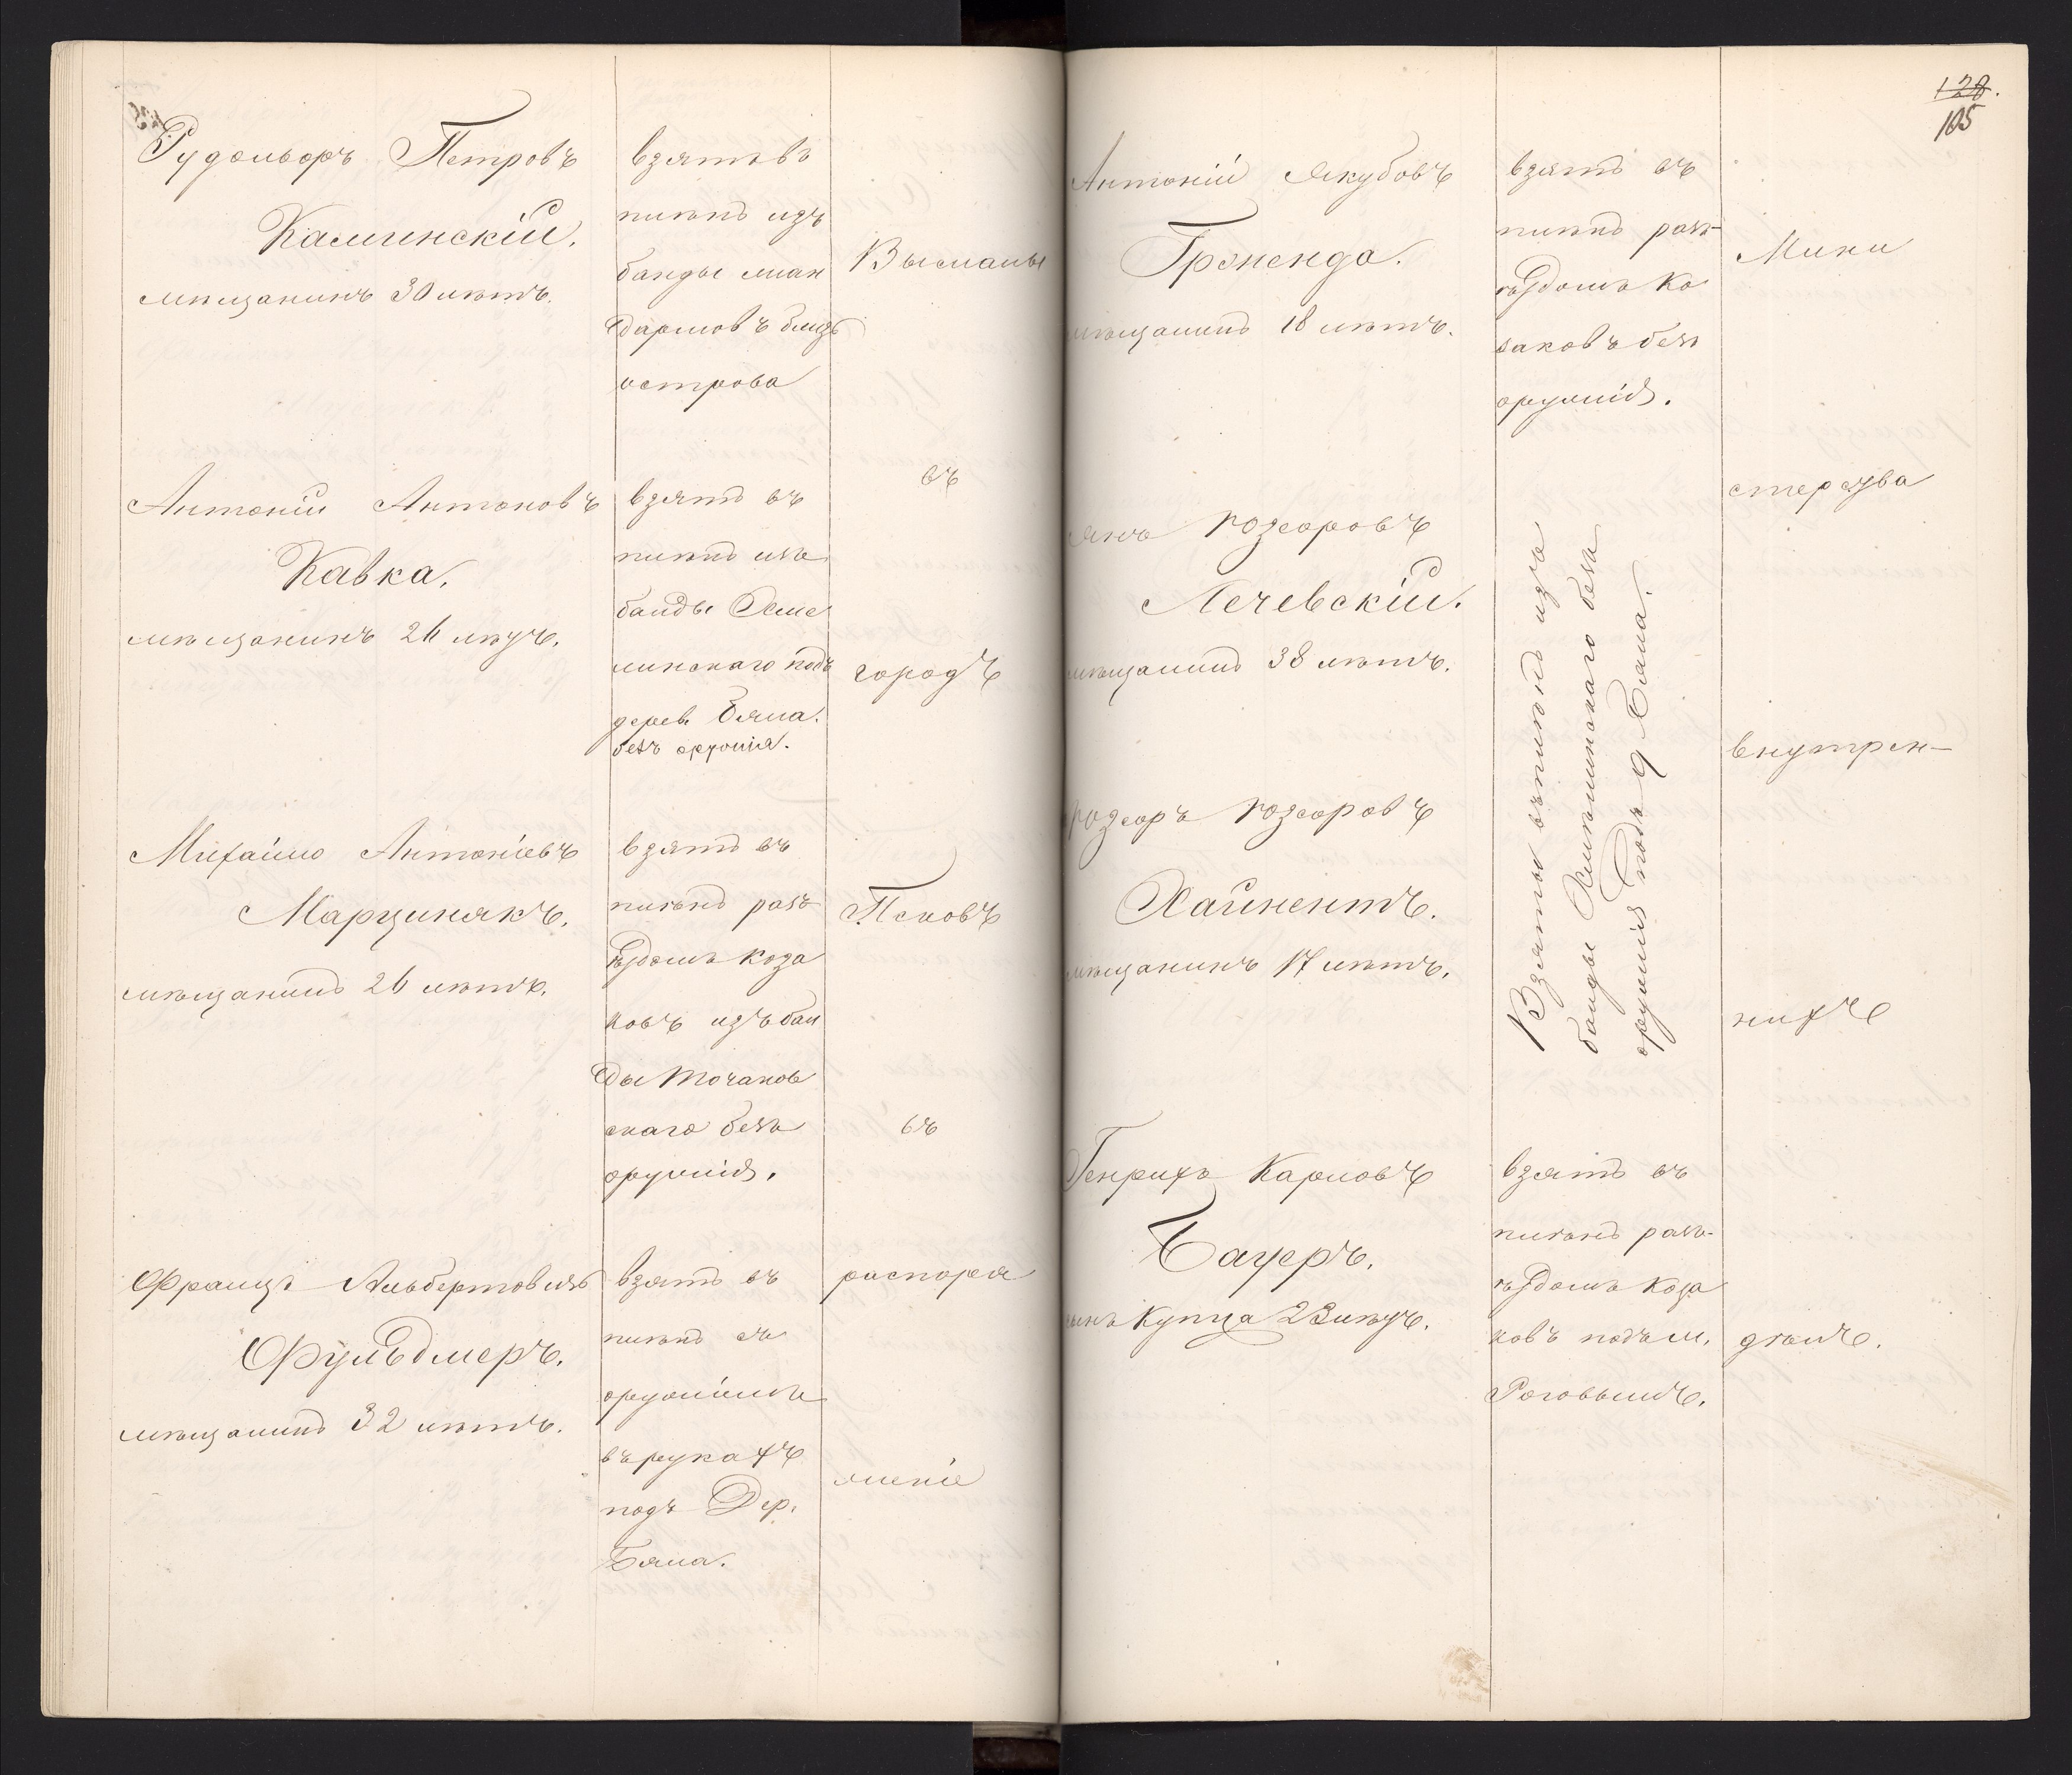 Рудольфъ Петровъ
Каминскій.
мѣщанинъ 30 лѣтъ.
взятъ въ
плѣнъ изъ
банды жан
дармовъ близь
острова
Высланы
Антоній Антоновъ
Кавка.
мѣщанинъ 26 лѣтъ.
взятъ въ
плѣнъ изъ
банды Хме
линскаго подъ
дерев. Бяла.
безъ оружія.
въ
городъ
Михайло Антоніевъ
Марцинякъ.
мѣщанинъ 26 лѣтъ.
взятъ въ
плѣнъ разъ
ѣздомъ коза
ковъ изъ бан
ды Точанов
скаго безъ
оружія.
Псковъ
въ
Францъ Альбертовичъ
Фульдмеръ.
мѣщанинъ 32 лѣтъ.
взятъ въ
плѣнъ съ
оружіемъ
въ рукахъ
подъ Дер.
Бяла.
распоря
женіе
128.
105
Антоній Якубовъ
Грженда.
мѣщанинъ 18 лѣтъ.
взятъ въ
плѣнъ разъ-
ѣздомъ ко
заковъ безъ
оружія.
Мини
стерства
Янъ Іозефовъ
Лечевскій.
мѣщанинъ 38 лѣтъ.
Іозефъ Іозефовъ
Хайнентъ.
мѣщанинъ 17 лѣтъ.
Взяты въ плѣнъ изъ
банды Хмѣлинскаго безъ
оружія подъ д Бяла.
внутрен-
нихъ
Генрихъ Карловъ
Бауеръ.
сынъ Купца 23 лѣтъ.
взятъ въ
плѣнъ разъ-
ѣздомъ коза
ковъ подъ м.
Роговымъ.
дѣлъ.